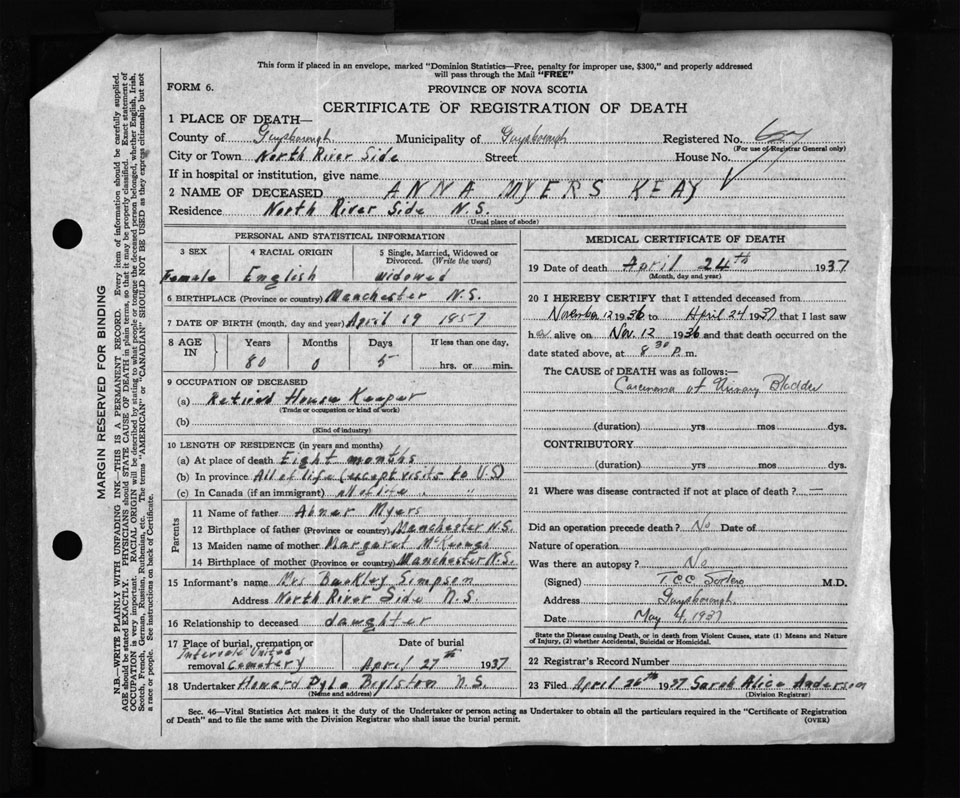 This form if placed in an envelope, marked "Dominion Statistics—Free, penalty for improper use, $300," and properly addressed
will pass through the Mail "FREE"
FORM 6.
PROVINCE OF NOVA SCOTIA
CERTIFICATE OF REGISTRATION OF DEATH
1 PLACE OF DEATH—
County of Guysborough Municipality of Guysborough Registered No.
(For use of Registrar General only)
City or Town North River Side Street House No.
If in hospital or institution, give name
2 NAME OF DECEASED ANNA MYERS KEAY
Residence North River Side N.S.
(Usual place of abode)
PERSONAL AND STATISTICAL INFORMATION
3 SEX 4 RACIAL ORIGIN 5 Single, Married, Widowed or Divorced. (Write the word)
Female English Widowed
6 BIRTHPLACE (Province or country) Manchester N.S.
7 DATE OF BIRTH (month, day and year) April 19 1857
8 AGE IN Years Months Days If less than one day,
80 0 5 hrs. or min.
9 OCCUPATION OF DECEASED
(a) Retired House Keeper
(Trade or occupation or kind of work)
(b)
(Kind of industry)
10 LENGTH OF RESIDENCE (in years and months)
(a) At place of death Eight months
(b) In province All of life (except visits to U.S)
(c) In Canada (if an immigrant) All of life " "
Parents
11 Name of father Abner Myers
12 Birthplace of father (Province or country) Manchester N.S.
13 Maiden name of mother Margaret McKeough
14 Birthplace of mother (Province or country) Manchester N.S.
15 Informant's name Mrs Buckley Simpson
Address North River Side N.S.
16 Relationship to deceased daughter
17 Place of burial, cremation or removal Date of burial
Intervale United
Cemetery April 27th 1937
18 Undertaker Howard Pyle Boylston N.S.
(Name and address)
MEDICAL CERTIFICATE OF DEATH
19 Date of death April 24th 1937
(Month, day and year)
20 I HEREBY CERTIFY that I attended deceased from
November 12 1936 to April 24 1937 that I last saw
her alive on Nov. 12 1936 and that death occurred on the
date stated above, at 8.30 P. m.
The CAUSE of DEATH was as follows:—
Carcinoma of Urinary Bladder
(duration) yrs mos dys.
CONTRIBUTORY
(duration) yrs mos dys.
21 Where was disease contracted if not at place of death? —
Did an operation precede death? No Date of
Nature of operation
Was there an autopsy? No
(Signed) T.C.C. M.D.
Address Guysborough
Date May 4, 1937
State the Disease causing Death, or in death from Violent Causes, state (1) Means and Nature
of Injury, (2) whether Accidental, Suicidal or Homicidal.
22 Registrar's Record Number
23 Filed April 26th 1937 Sarah Alice Anderson
(Division Registrar)
Sec. 46—Vital Statistics Act makes it the duty of the Undertaker or person acting as Undertaker to obtain all the particulars required in the "Certificate of Registration
of Death" and to file the same with the Division Registrar who shall issue the burial permit.
(OVER)
MARGIN RESERVED FOR BINDING
N.B.—WRITE PLAINLY WITH UNFADING INK—THIS IS A PERMANENT RECORD. Every item of information should be carefully supplied.
AGE should be stated EXACTLY. PHYSICIANS should STATE CAUSE OF DEATH in plain terms, so that it may be properly classified. Exact statement of
OCCUPATION is very important. RACIAL ORIGIN will be described by stating to what people or tongue the deceased person belonged, whether English, Irish,
Scotch, French, German, Russian, Ruthenian, etc. The terms "AMERICAN" or "CANADIAN" SHOULD NOT BE USED as they express citizenship but not
a race or people. See instructions on back of Certificate.